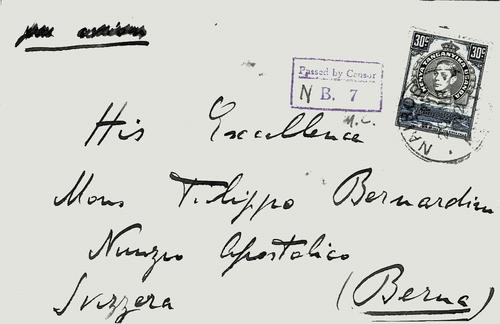 par avion
30c 30c
KENYA TANGANYIKA UGANDA
Passed by Censor
N B. 7
His Excellence
Mons Filippo Bernardini
Nunzio Apostolico
Svizzera (Berna)